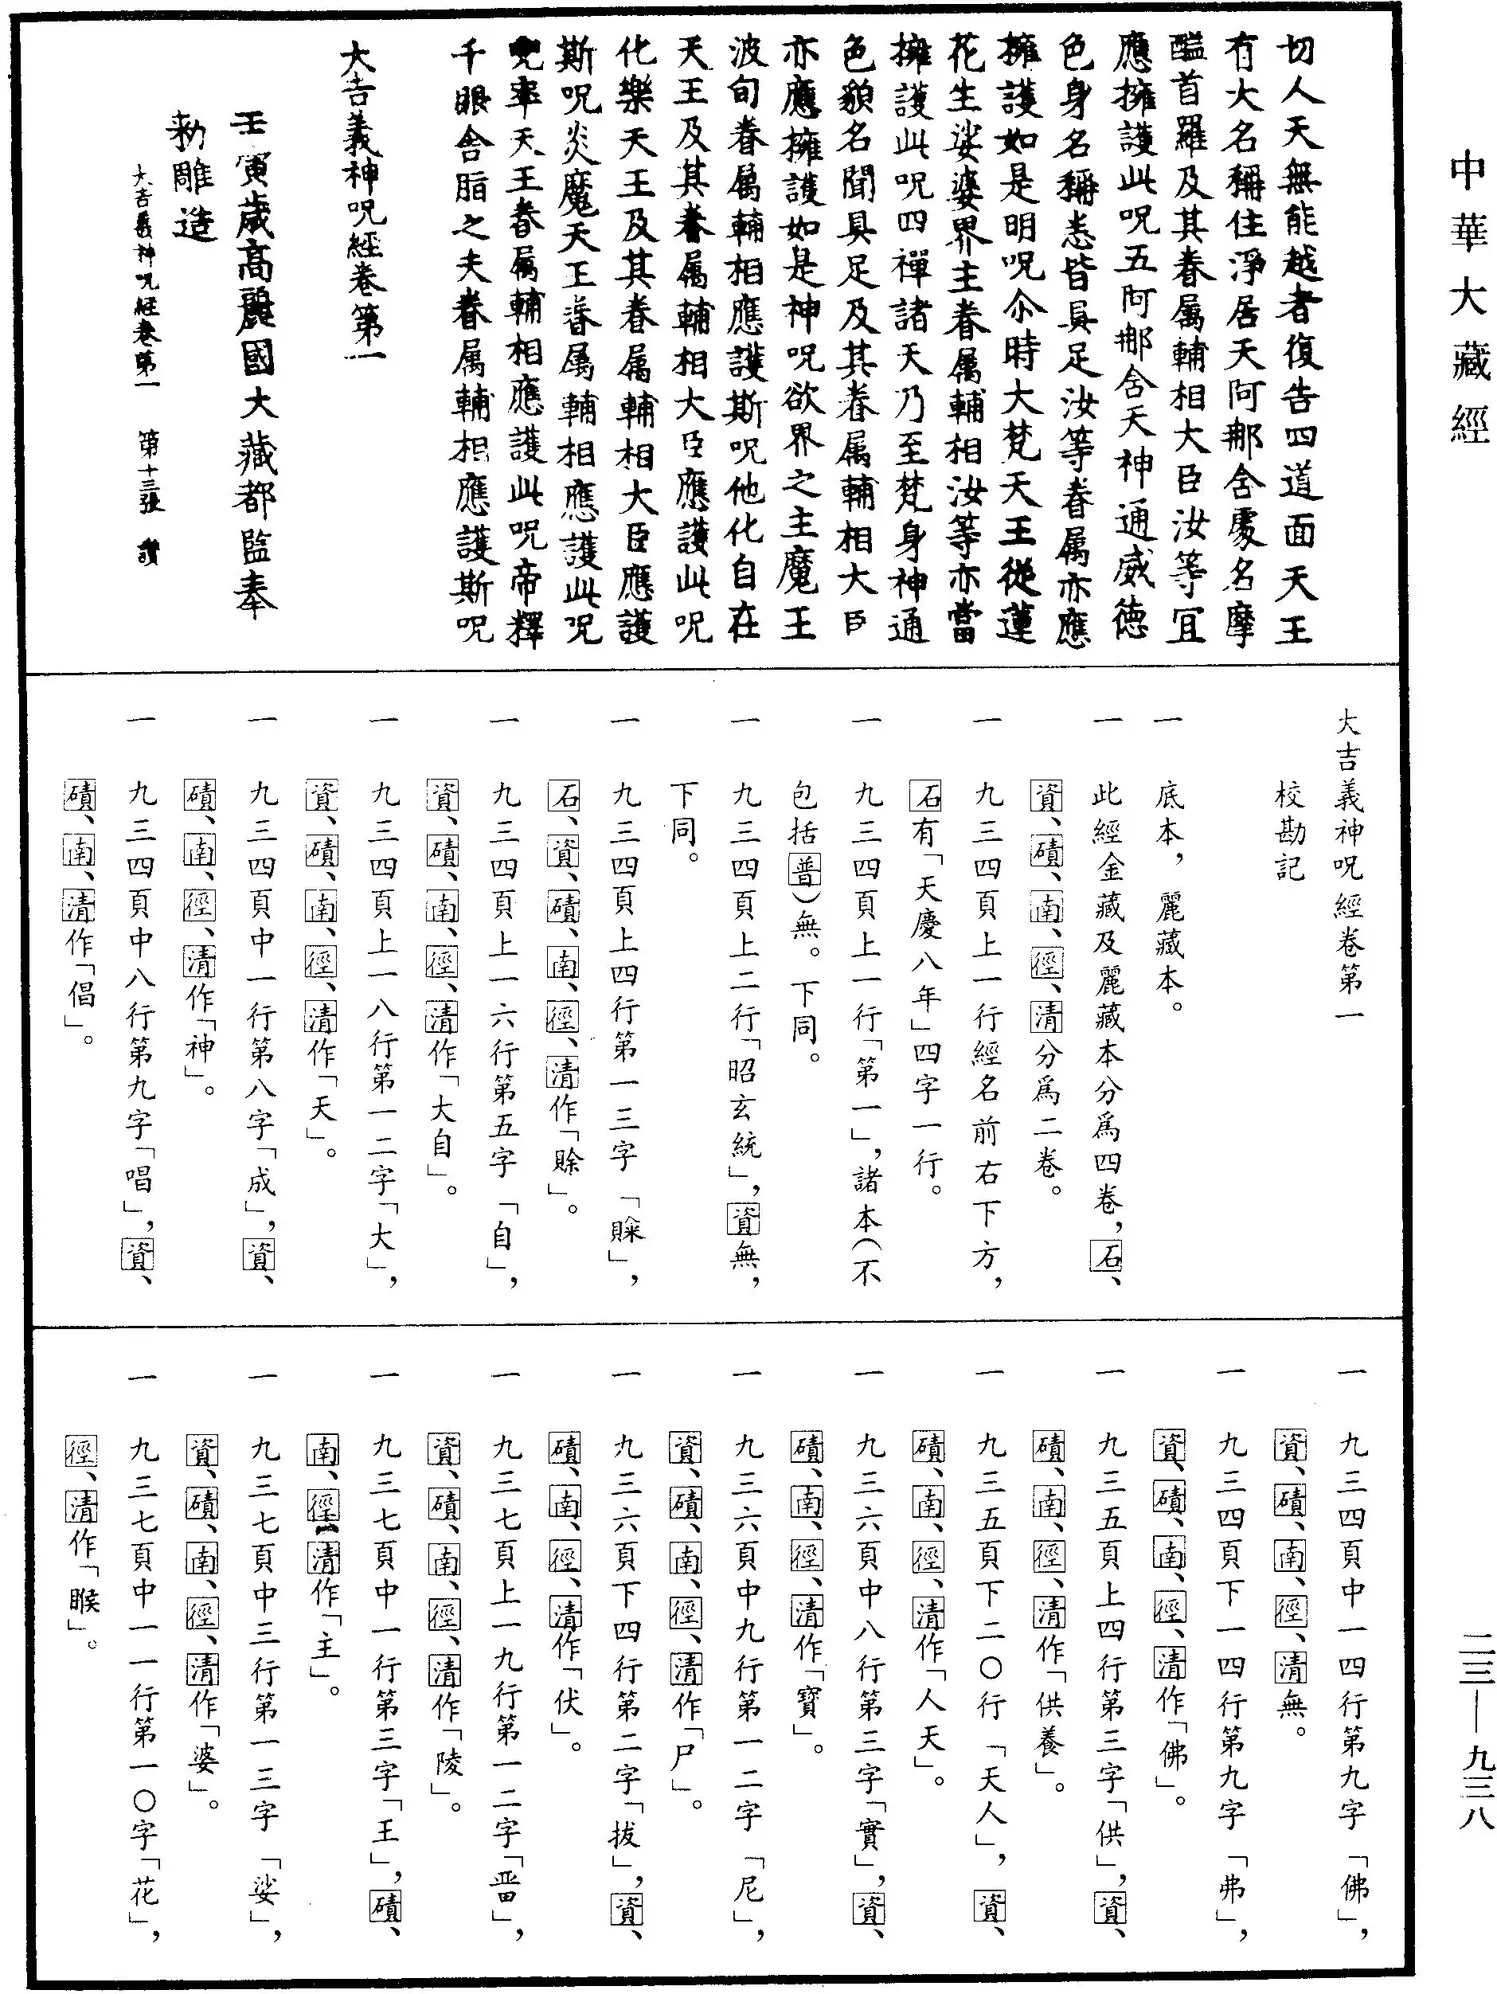 中華大藏經
切人天無能越者復告四道面天王
有大名稱住淨居天阿那舍處名摩
醯首羅及其眷属輔相大臣汝等冝
應擁護此呪五阿那舍天神通威德
色身名稱悉皆具足汝等眷属亦應
擁護如是明呪尒時大梵天王從蓮
花生娑婆界主眷属輔相汝等亦當
擁護此呪四禪諸天乃至梵身神通
色貌名聞具足及其眷属輔相大臣
亦應擁護如是神呪欲界之主魔王
波旬眷属輔相應護斯呪他化自在
天王及其眷属輔相大臣應護此呪
化樂天王及其眷属輔相大臣應護
斯呪炎魔天王眷属輔相應護此呪
兜率天王眷属輔相應護此呪帝釋
千眼舍脂之夫眷属輔相應護斯呪
大吉義神呪經卷第一
壬寅歲高麗國大藏都監奉
勑雕造
大吉義神呪經卷第一 第十三張
大吉義神呪經卷第一
校勘記
一 底本，麗藏本。
一 此經金藏及麗藏本分爲四卷，石、
資、磧、南、徑、清分爲二卷。
一 九三四頁上一行經名前右下方，
石有「天慶八年」四字一行。
一 九三四頁上一行「第一」，諸本（不
包括普）無。下同。
一 九三四頁上二行「昭玄統」，資無，
下同。
一 九三四頁上四行第一三字「賝」，
石、資、磧、南、徑、清作「賒」。
一 九三四頁上一六行第五字「自」，
資、磧、南、徑、清作「大自」。
一 九三四頁上一八行第一二字「大」，
資、磧、南、徑、清作「天」。
一 九三四頁中一行第八字「成」，資、
磧、南、徑、清作「神」。
一 九三四頁中八行第九字「唱」，資、
磧、南、清作「倡」。
一 九三四頁中一四行第九字「佛」，
資、磧、南、徑、清無。
一 九三四頁下一四行第九字「弗」，
資、磧、南、徑、清作「佛」。
一 九三五頁上四行第三字「供」，資、
磧、南、徑、清作「供養」。
一 九三五頁下二〇行「天人」，資、
磧、南、徑、清作「人天」。
一 九三六頁中八行第三字「實」，資、
磧、南、徑、清作「寶」。
一 九三六頁中九行第一二字「尼」，
資、磧、南、徑、清作「尸」。
一 九三六頁下四行第二字「拔」，資、
磧、南、徑、清作「伏」。
一 九三七頁上一九行第一二字「畨」，
資、磧、南、徑、清作「陵」。
一 九三七頁中一行第三字「王」，磧、
南、徑、清作「主」。
一 九三七頁中三行第一三字「娑」，
資、磧、南、徑、清作「婆」。
一 九三七頁中一一行第一〇字「花」，
徑、清作「睺」。
二三—九三八